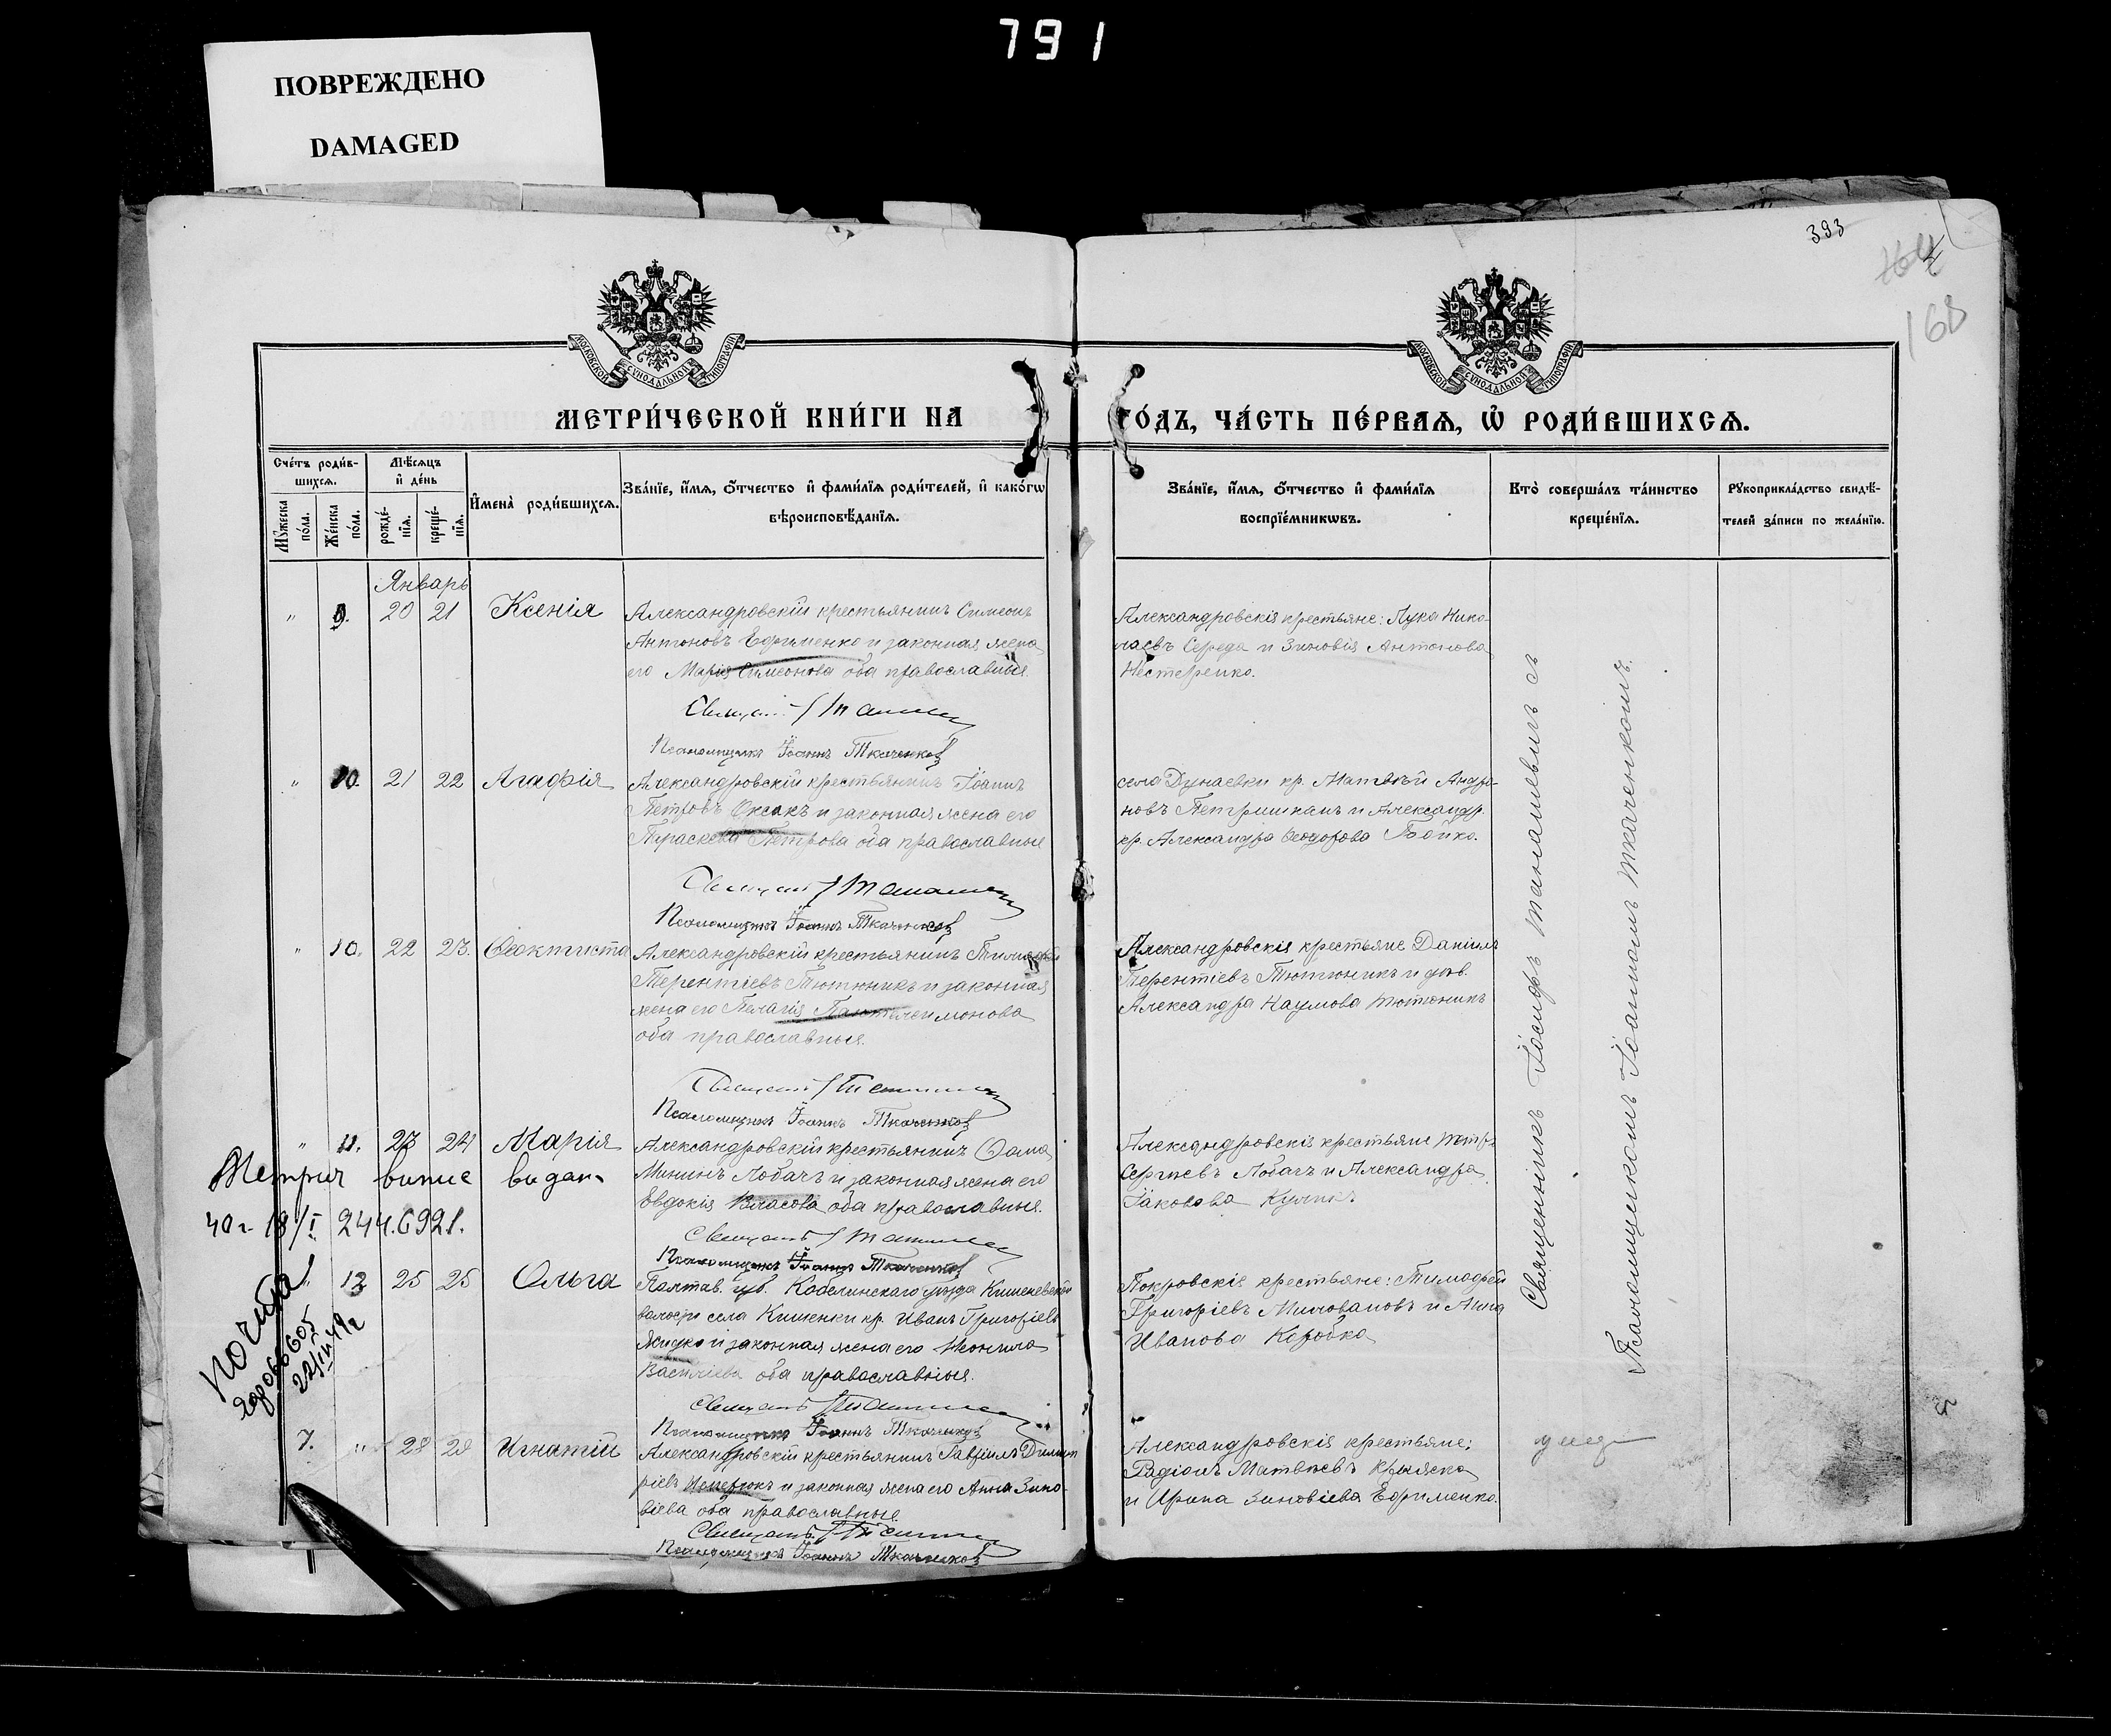 791
ПОВРЕЖДЕНО
DAMAGED
393
168
МОСКОВСКОЙ СУНОДАЛЬНОЙ ТИПОГРАФІИ
МОСКОВСКОЙ СУНОДАЛЬНОЙ ТИПОГРАФІИ
МЕТРИ́ЧЕСКОЙ КНИ́ГИ НА ГО́ДЪ, ЧА́СТЬ ПЕ́РВАѦ, Ѡ҆ РОДИ́ВШИХСѦ.
Сче́тъ роди́вшихсѧ.
Мѣ́сѧцъ и҆ де́нь
Мꙋ́жеска по́ла.
Же́нска по́ла.
рожде́нїѧ.
креще́нїѧ.
И҆мена̀ роди́вшихсѧ.
Зва́нїе, и҆́мѧ, ѻ҆́тчество и҆ фами́лїѧ роди́телей, и҆ како́гѡ
вѣроисповѣ́данїѧ.
Зва́нїе, и҆́мѧ, ѻ҆́тчество и҆ фами́лїѧ
воспрїе́мникѡвъ.
Кто̀ соверша́лъ та́инство
креще́нїѧ.
Рꙋкоприкла́дство свидѣ́-
телей за́писи по жела́нїю.
Январь
" 9. 20 21 Ксенія
Александровскій крестьянинъ Симеонъ
Антоновъ Ефименко и законная жена
его Марія Симеонова оба православные
Псаломщикъ Іоаннъ Ткаченковъ
Александровскія крестьяне: Лука Нико-
лаевъ Середа и Зиновія Антонова
Нестеренко.
" 10. 21 22 Агафія
Александровскій крестьянинъ Іоаннъ
Петровъ Оксакъ и законная жена его
Параскева Петрова оба православные
Псаломщикъ Іоаннъ Ткаченковъ
села Дунаевки кр. Матвѣй Андро-
новъ и Александр.
кр. Александра Ѳеодорова Бойко.
" 10. 22 23. Ѳеоктиста
Александровскій крестьянинъ Тимофей
Терентіевъ Тютюникъ и законная
жена его Пелагія Пантелеимонова
оба православные.
Псаломщикъ Іоаннъ Ткаченковъ
Александровскія крестьяне Даніилъ
Терентіевъ Тютюникъ и дѣв.
Александра Наумова Тютюникъ
" 11. 23 24 Марія
Александровскій крестьянинъ Ѳома
Мининъ Лобачъ и законная жена его
Евдокія Власова оба православные.
Псаломщикъ Іоаннъ Ткаченковъ
Александровскія крестьяне Петръ
Сергѣевъ Лобачъ и Александра
Іаковова
Метрич видан
40 г. 18/I 244.6921.
" 12 25 25 Ольга
Полтав. губ. Кобелякскаго уѣзда Кишеневской
волости села Кишенки кр. Иванъ Григоріевъ
и законная жена его Неонила
Васильева оба православные.
Псаломщикъ Іоаннъ Ткаченковъ
Покровскіе крестьяне: Тимофей
Григоріевъ Миловановъ и Анна
Иванова Коробка
7. " 28 28 Игнатій
Александровскій крестьянинъ Гавріилъ Димит-
ріевъ и законная жена его Анна Зино-
віева оба православные
Псаломщикъ Іоаннъ Ткаченковъ
Александровскія крестьяне:
Родіонъ Матвѣевъ
и Ирина Зиновіева Ефименко.
Священникъ Іосифъ Танашевичъ съ
Псаломщикомъ Іоанномъ Ткаченкомъ.